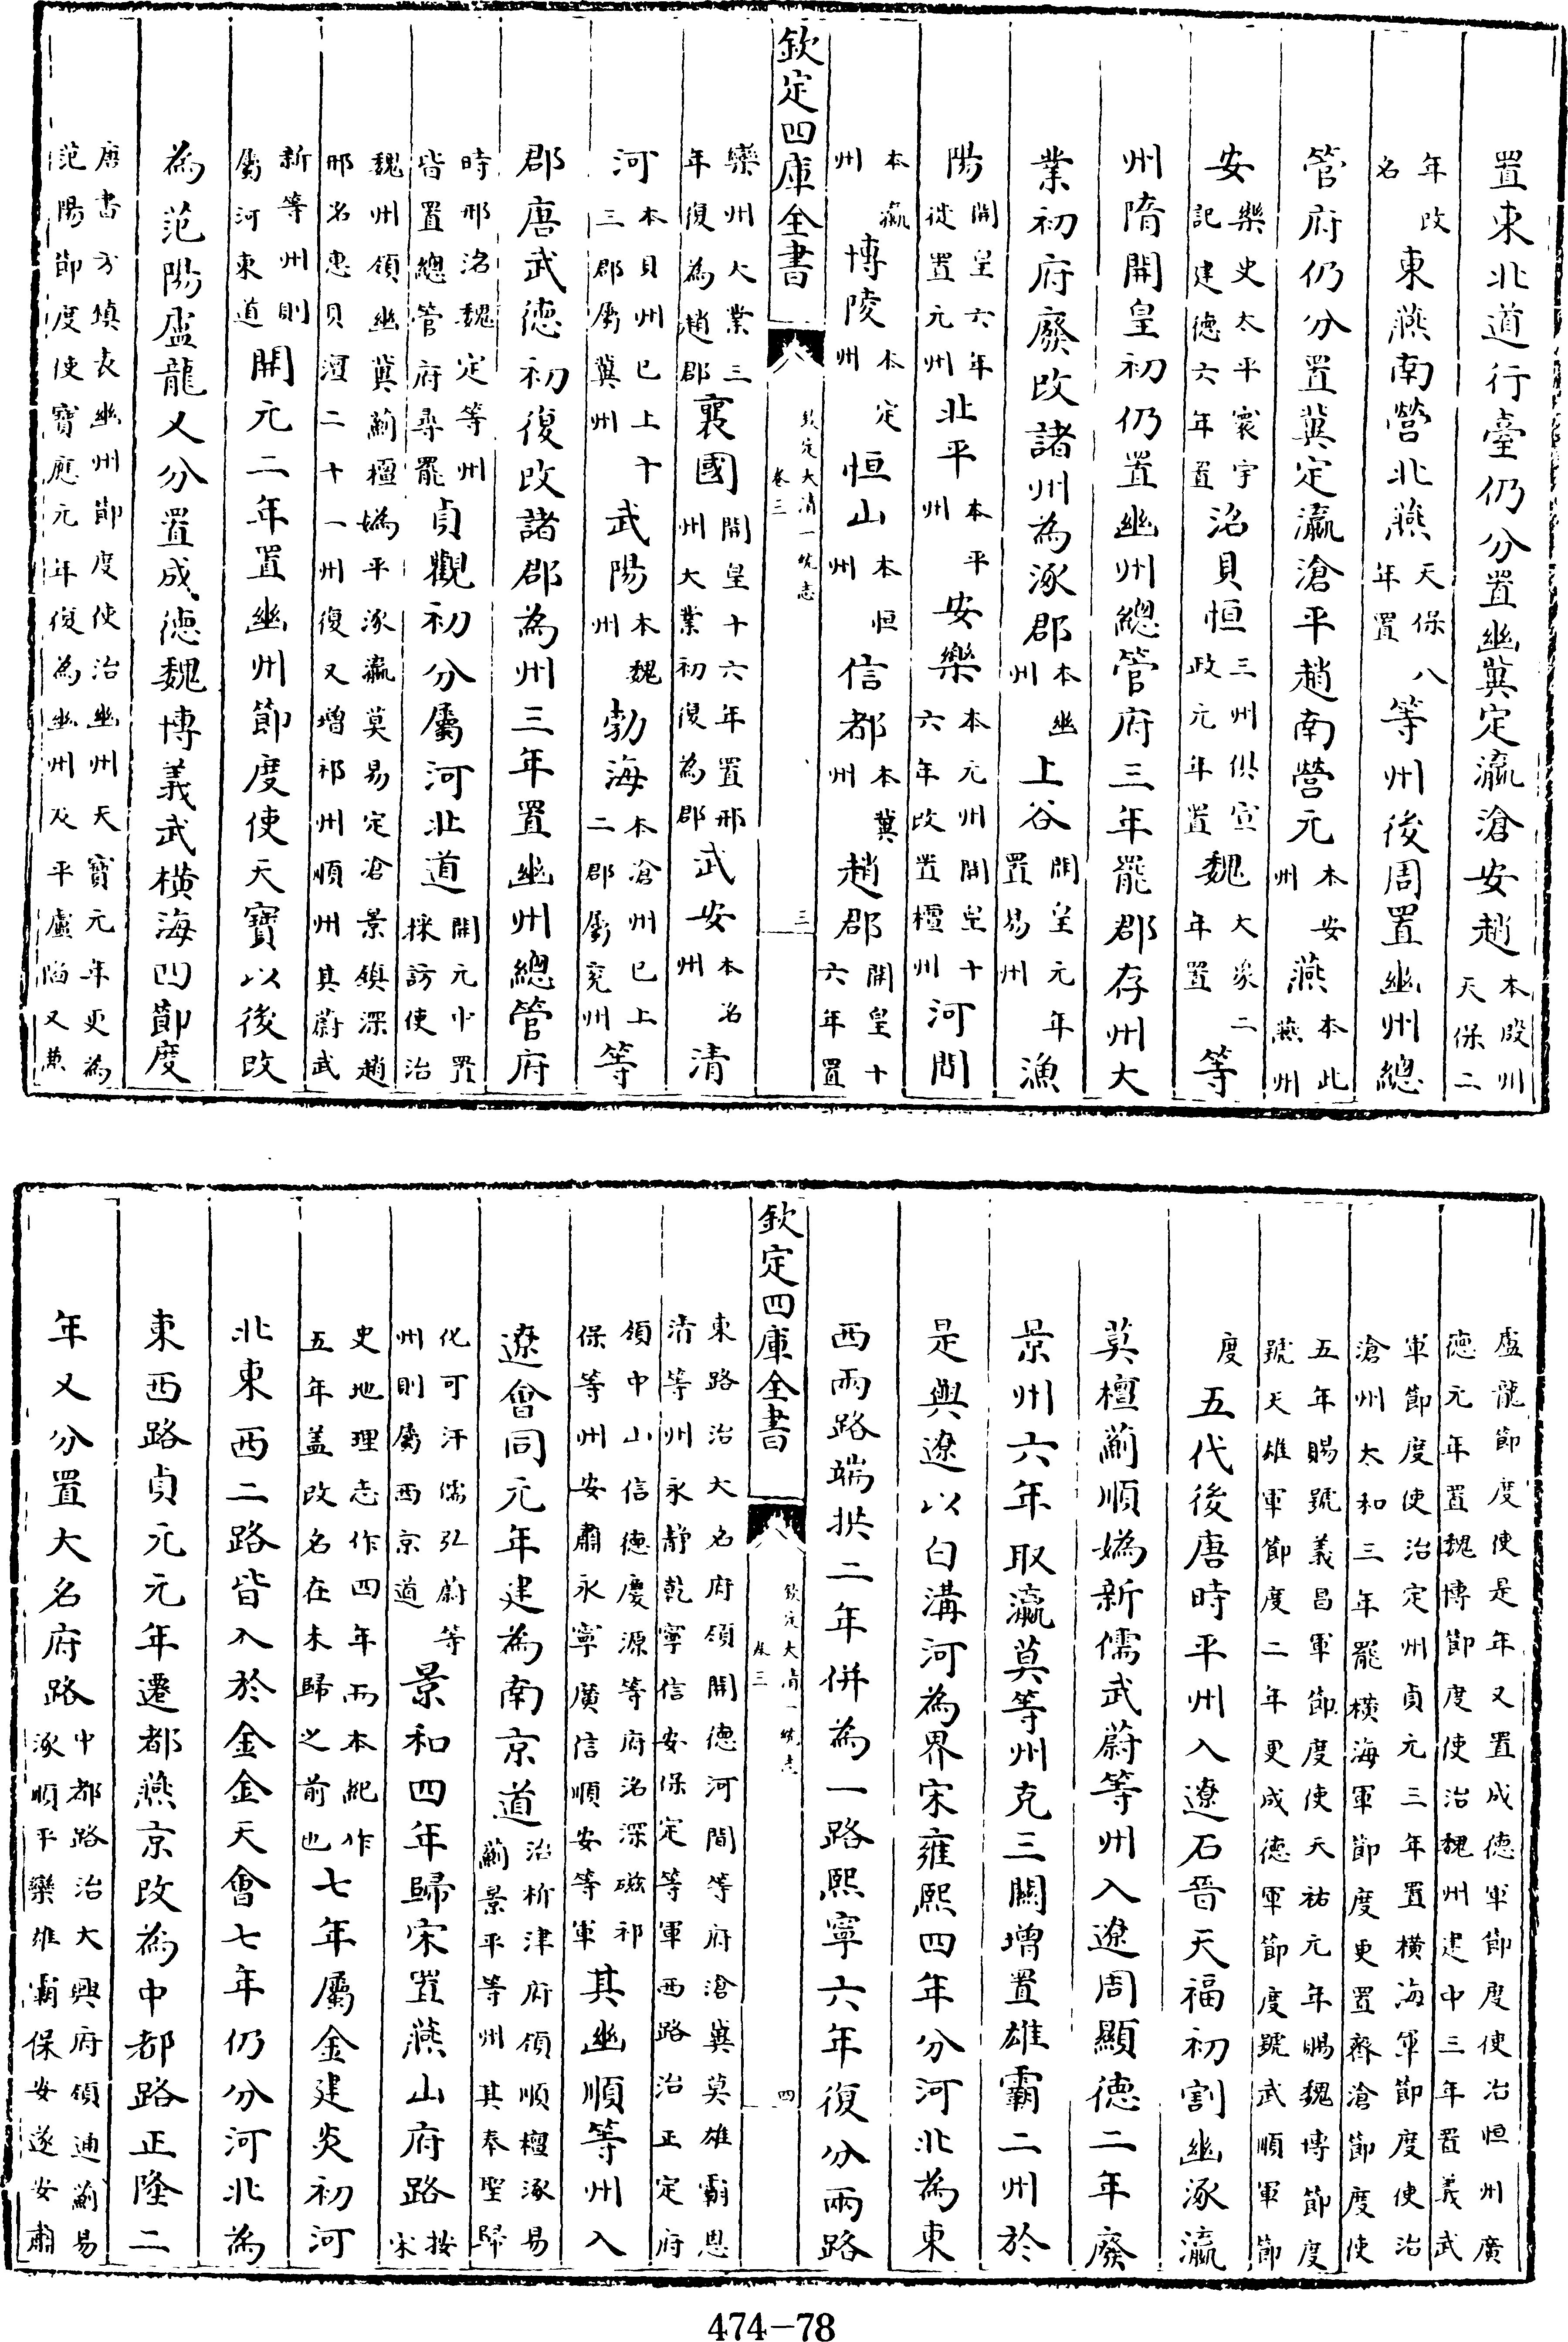 置東北道行臺仍分置幽冀定瀛滄安趙本殷州天保二
年改名東燕南營北燕天保八年置等州後周置幽州總
管府仍分置冀定瀛滄平趙南營元本安州燕本北燕州
安樂史太平寰宇記建德六年置洺貝恒三州俱宣政元年置魏大象二年置等
州隋開皇初仍置幽州總管府三年罷郡存州大
業初府廢改諸州為涿郡本幽州上谷開皇元年置易州漁
陽開皇六年徙置元州北平本平州安樂本元州開皇十六年改置檀州河間
本瀛州博陵本定州恒山本恒州信都本冀州趙郡開皇十六年置
欽定四庫全書
欽定大清一統志
卷三
三
欒州大業三年復為趙郡襄國開皇十六年置邢州大業初復為郡武安本洺州清
河本貝州已上十三郡屬冀州武陽本魏州勃海本滄州已上二郡屬兗州等
郡唐武德初復改諸郡為州三年置幽州總管府
時邢洺魏定等州皆置總管府尋罷貞觀初分屬河北道開元中置採訪使治
魏州領幽冀薊檀媯平涿瀛莫易定滄景鎮深趙邢名惠貝澶二十一州復又增祁州順州其蔚武
新等州則屬河東道開元二年置幽州節度使天寶以後改
為范陽盧龍又分置成德魏博義武橫海四節度
唐書方填表幽州節度使治幽州天寶元年更為范陽節度使寶應元年復為幽州及平盧陷又兼
盧龍節度使是年又置成德軍節度使治恒州廣德元年置魏博節度使治魏州建中三年置義武
軍節度使治定州貞元三年置橫海軍節度使治滄州太和三年罷橫海軍節度更置齊滄節度使
五年賜號義昌軍節度使天祐元年賜魏博節度號天雄軍節度二年更成德軍節度號武順軍節
度五代後唐時平州入遼石晉天福初割幽涿瀛
莫檀薊順媯新儒武蔚等州入遼周顯德二年廢
景州六年取瀛莫等州克三關增置雄霸二州於
是與遼以白溝河為界宋雍熙四年分河北為東
西兩路端拱二年併為一路熙寧六年復分兩路
欽定四庫全書
欽定大清一統志
卷三
四
東路治大名府領開德河間等府滄冀莫雄霸恩清等州永靜乾寧信安保定等軍西路治正定府
領中山信德慶源等府洺深磁祁保等州安肅永寧廣信順安等軍其幽順等州入
遼會同元年建為南京道治析津府領順檀涿易薊景平等州其奉聖歸
化可汗儒弘蔚等州則屬西京道景和四年歸宋置燕山府路按宋
史地理志作四年而本紀作五年蓋改名在未歸之前也七年屬金建炎初河
北東西二路皆入於金金天會七年仍分河北為
東西路貞元元年遷都燕京改為中都路正隆二
年又分置大名府路中都路治大興府領通薊易涿順平欒雄霸保安遂安肅
474-78